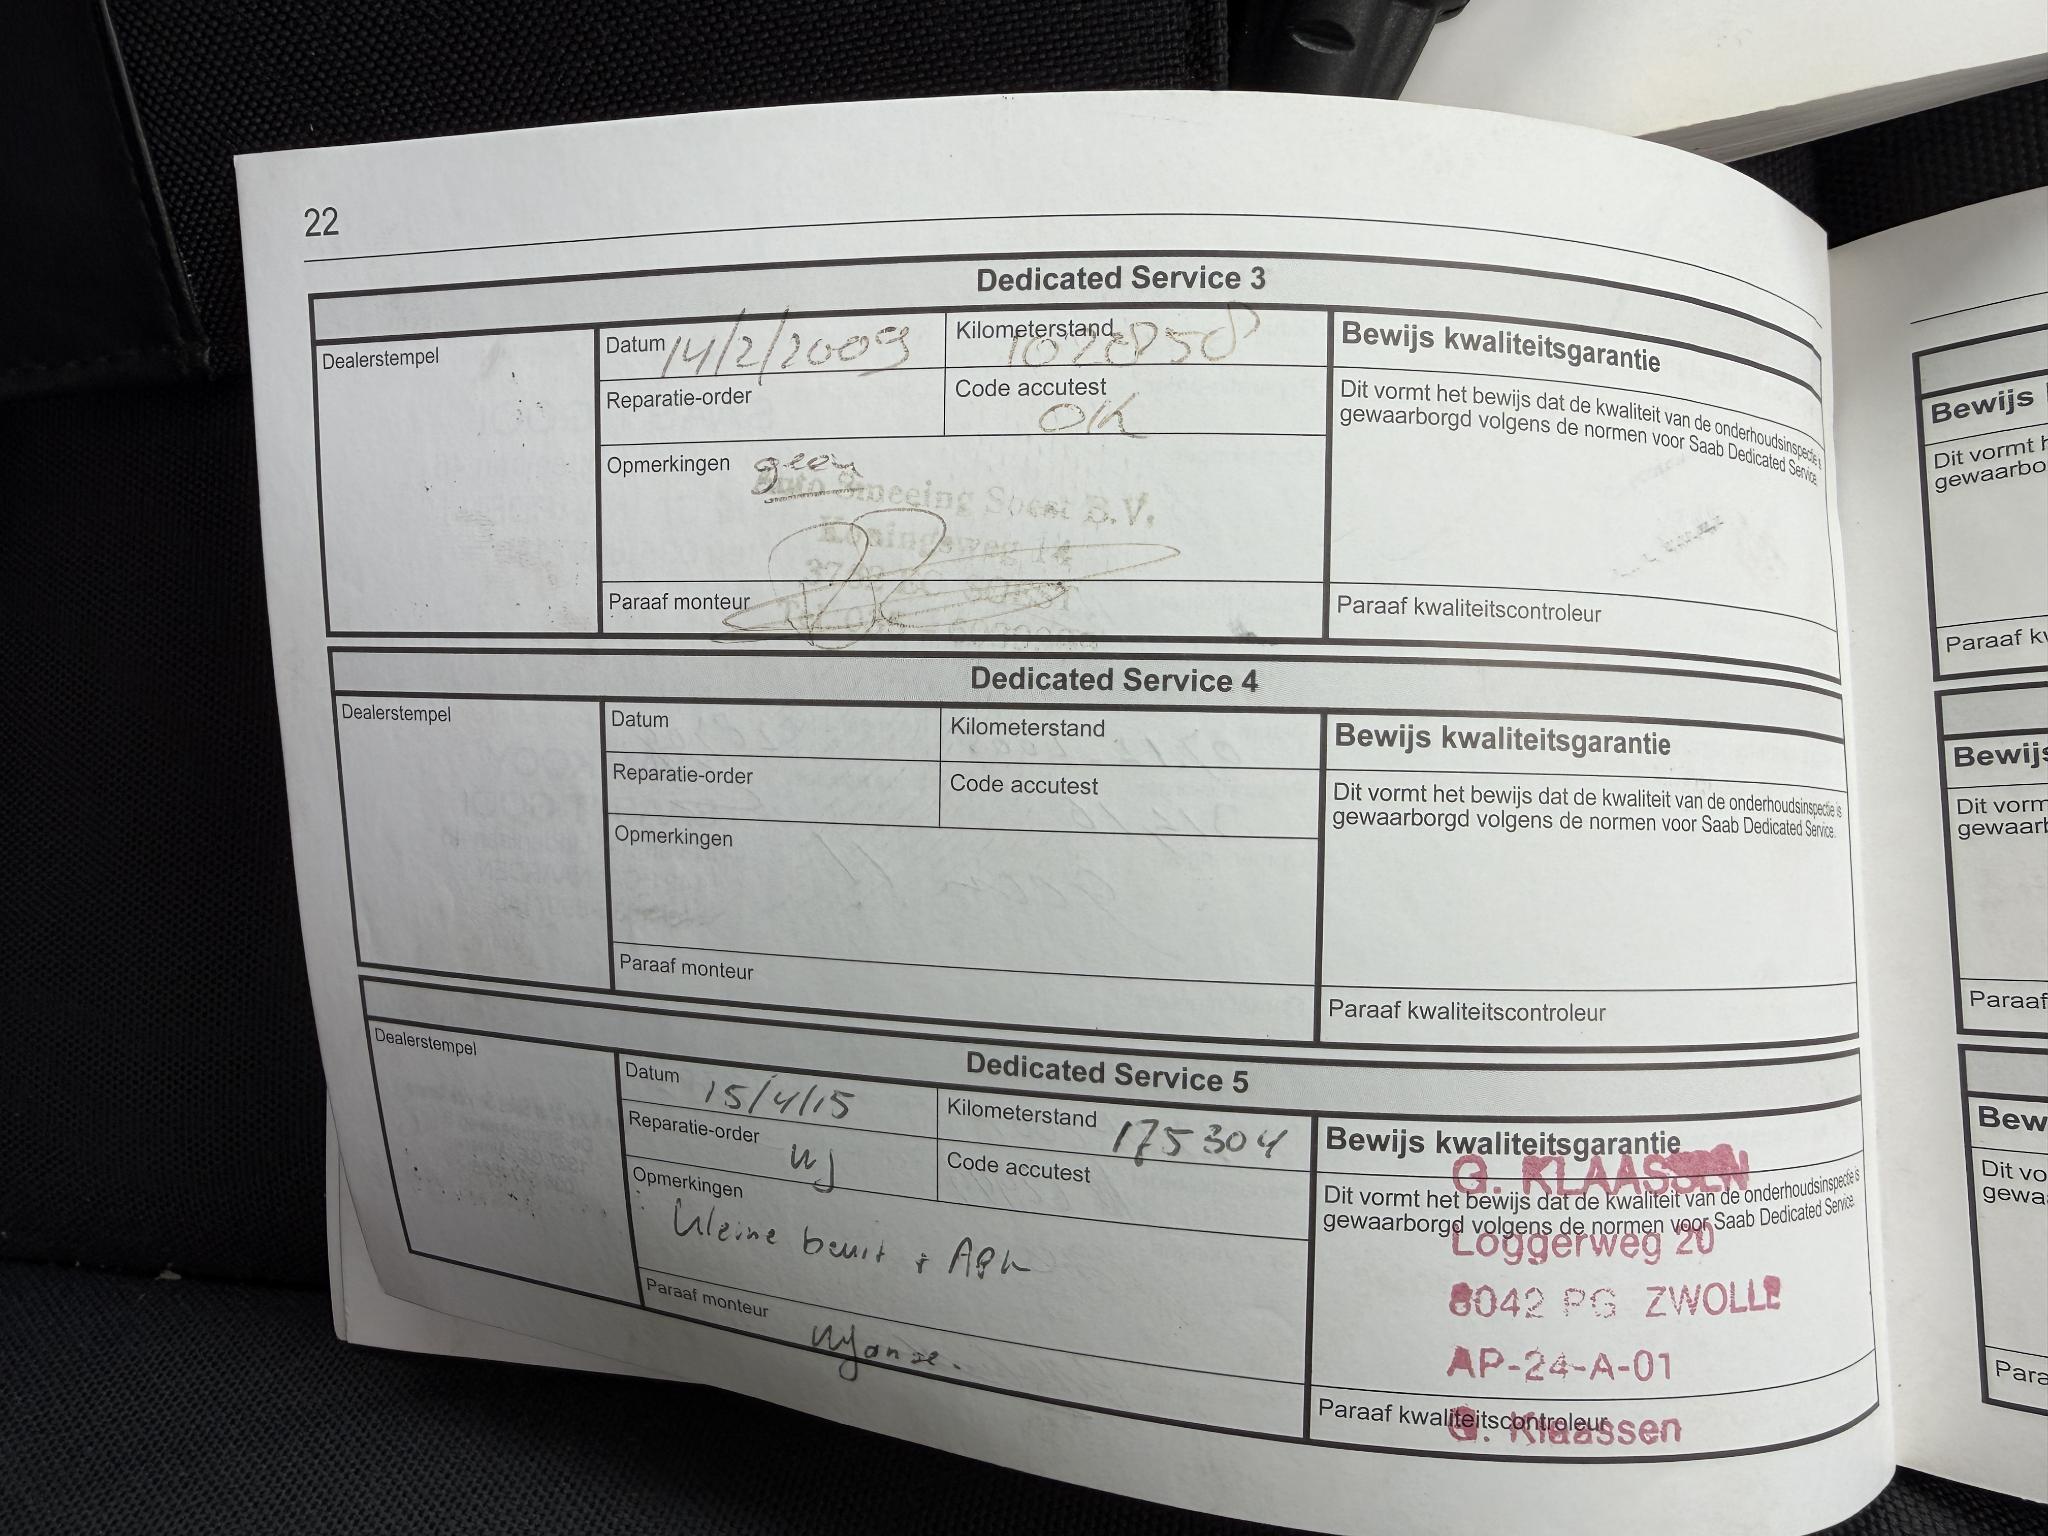 22
Dedicated Service 3
Dealerstempel
Datum 14/2/2009
Kilometerstand
Reparatie-order
Code accutest OK
Opmerkingen geen
Auto Smeeing Soest B.V.
Koningsweg 14
Paraaf monteur
Bewijs kwaliteitsgarantie
Dit vormt het bewijs dat de kwaliteit van de onderhoudsinspectie is
gewaarborgd volgens de normen voor Saab Dedicated Service.
Paraaf kwaliteitscontroleur
Dedicated Service 4
Dealerstempel
Datum
Kilometerstand
Reparatie-order
Code accutest
Opmerkingen
Paraaf monteur
Bewijs kwaliteitsgarantie
Dit vormt het bewijs dat de kwaliteit van de onderhoudsinspectie is
gewaarborgd volgens de normen voor Saab Dedicated Service.
Paraaf kwaliteitscontroleur
Dedicated Service 5
Dealerstempel
Datum 15/4/15
Kilometerstand 175304
Reparatie-order
Code accutest
Opmerkingen
Kleine beurt + APK
Paraaf monteur
Bewijs kwaliteitsgarantie
G. KLAASSEN
Dit vormt het bewijs dat de kwaliteit van de onderhoudsinspectie is
gewaarborgd volgens de normen voor Saab Dedicated Service.
Loggerweg 20
8042 PG ZWOLLE
AP-24-A-01
Paraaf kwaliteitscontroleur
G. Klaassen
Bewijs
Dit vormt
gewaarbo
Paraaf kw
Bewijs
Dit vorm
gewaarb
Paraaf
Bew
Dit vo
gewa
Para